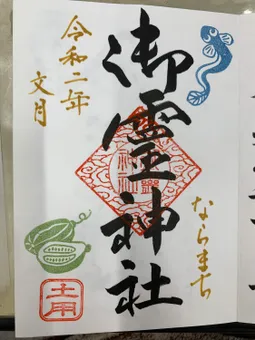 御霊神社
令和二年
文月
ならまち
土用